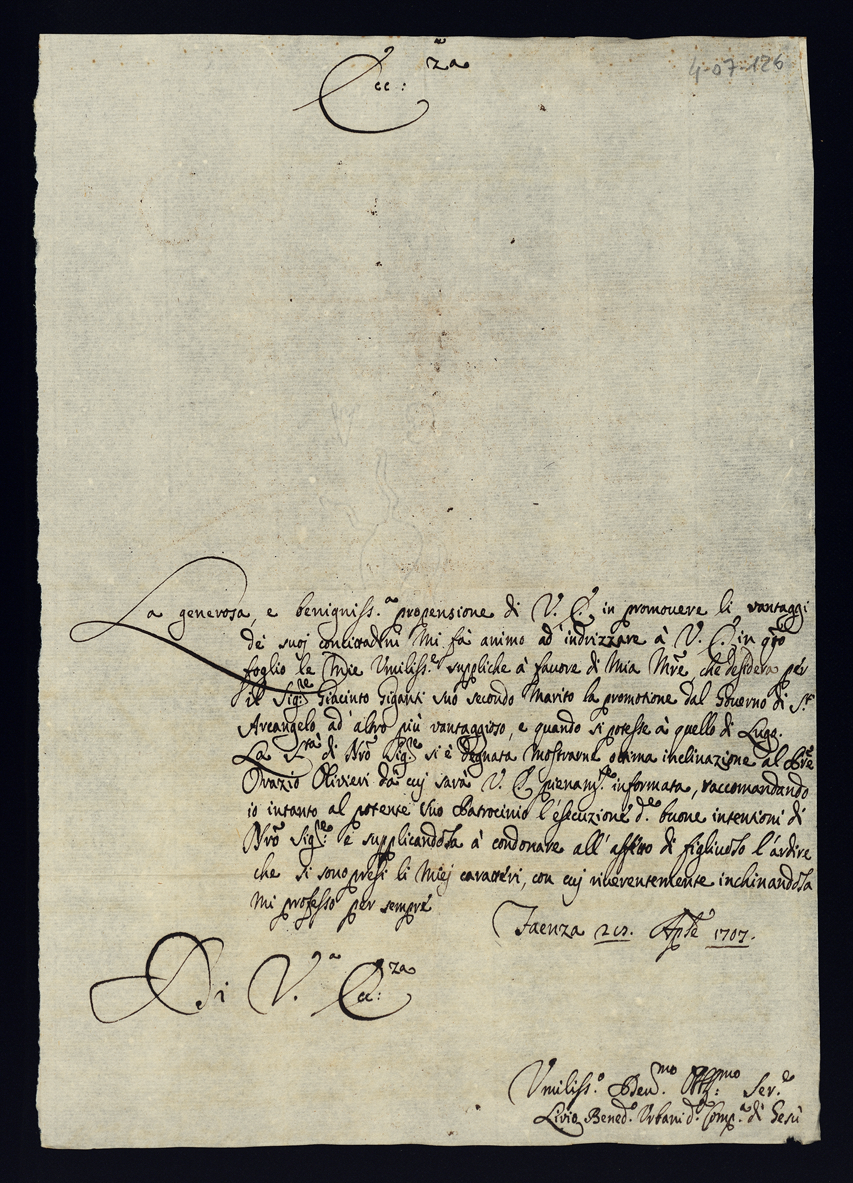 4-07-126
Ecc:za
La generosa, e benigniss.a propensione di V. E. in promovere li vantaggi
de' suoi concittadini mi fà animo ad' indrizzare à V. E. in q̃to
foglio le mie Umiliss.e suppliche à favore di mia Mr̃e, che desidera per
il Sig.re Giacinto Giganti suo secondo Marito la promotione dal Governo di S.t
Arcangelo ad' altro più vantaggioso, e quando si potesse à quello di Lugo.
La S.tà di Nrõ Sig.re si è degnata mostrarne ottima inclinazione al Pr̃e
Orazio Olivieri da cuj sarà V. E. pienam.te informata, raccomandando
io intanto al potente suo Patrocinio l'esecuzione d.e buone intensioni di
Nrõ Sig.re: e supplicandola à condonare all' affetto di figliuolo l'ardire
che si sono presi li miej caratteri, con cuj riverentemente inchinandola
mi professo per sempre
Faenza Aple 1707.
Di V.a Ecc:za
Umiliss.o Dev.mo Obb:mo Ser.e
Livio Bened.o Urbani d.a Comp.a di Gesù